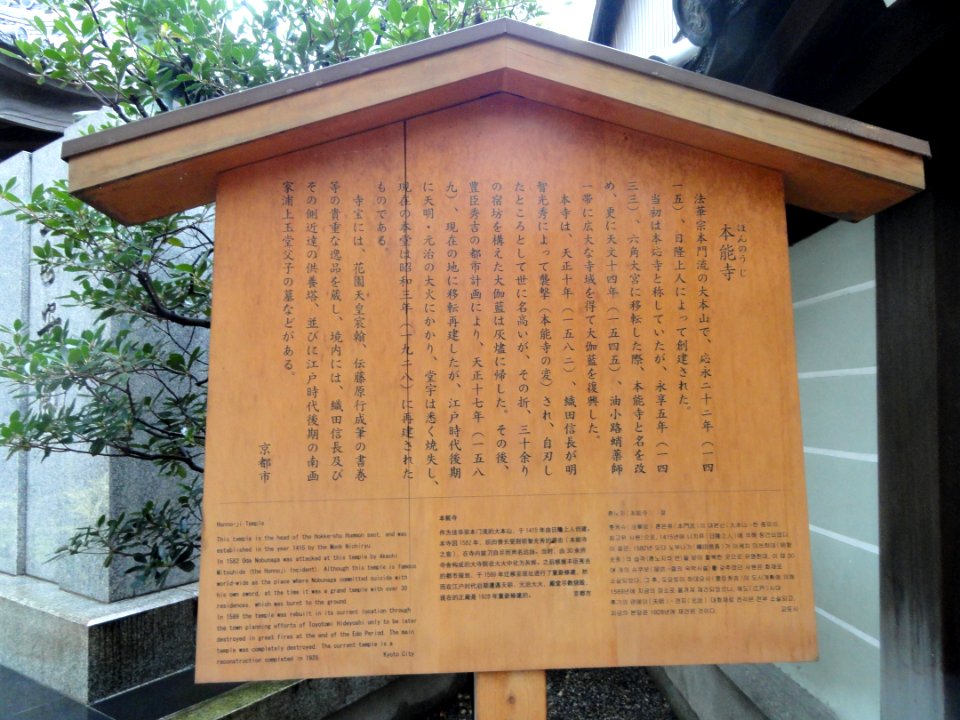 ほんのうじ
本能寺
法華宗本門流の大本山で、応永二十二年（一四
一五）、日隆上人によって創建された。
当初は本応寺と称していたが、永享五年（一四
三三）、六角大宮に移転した際、本能寺と名を改
め、更に天文十四年（一五四五）、油小路蛸薬師
一帯に広大な寺域を得て大伽藍を復興した。
本寺は、天正十年（一五八二）、織田信長が明
智光秀によって襲撃（本能寺の変）され、自刃し
たところとして世に名高いが、その折、三十余り
の宿坊を構えた大伽藍は灰燼に帰した。その後、
豊臣秀吉の都市計画により、天正十七年（一五八
九）、現在の地に移転再建したが、江戸時代後期
に天明・元治の大火にかかり、堂宇は悉く焼失し、
現在の本堂は昭和三年（一九二八）に再建された
ものである。
寺宝には、花園天皇宸翰、伝藤原行成筆の書巻
等の貴重な逸品を蔵し、境内には、織田信長及び
その側近達の供養塔、並びに江戸時代後期の南画
家浦上玉堂父子の墓などがある。
京都市
Honno-ji Temple
This temple is the head of the Hokke-shu Honmon sect, and was
established in the year 1415 by the Monk Nichiryu.
In 1582 Oda Nobunaga was attacked at this temple by Akechi
Mitsuhide (the Honnoji Incident). Although this temple is famous
world-wide as the place where Nobunaga committed suicide with
his own sword, at the time it was a grand temple with over 30
residences, which was burnt to the ground.
In 1589 the temple was rebuilt in its current location through
the town planning efforts of Toyotomi Hideyoshi only to be later
destroyed in great fires at the end of the Edo Period. The main
temple was completely destroyed. The current temple is a
reconstruction completed in 1928. Kyoto City
本能寺
作为法华宗本门流的大本山，于1415年由日隆上人创建。
本寺因1582年，织田信长受到明智光秀的袭击（本能寺
之变），在寺内拔刀自尽而闻名远扬。当时，由30余所
寺舍构成的大寺院在大火中化为灰烬。之后根据丰臣秀吉
的都市规划，于1589年迁移至现址进行了重新修建，然
而在江户时代后期遭遇天明、元治大火，殿堂尽数烧毁。
现在的正殿是1928年重新修建的。 京都市
혼노지（本能寺） 절